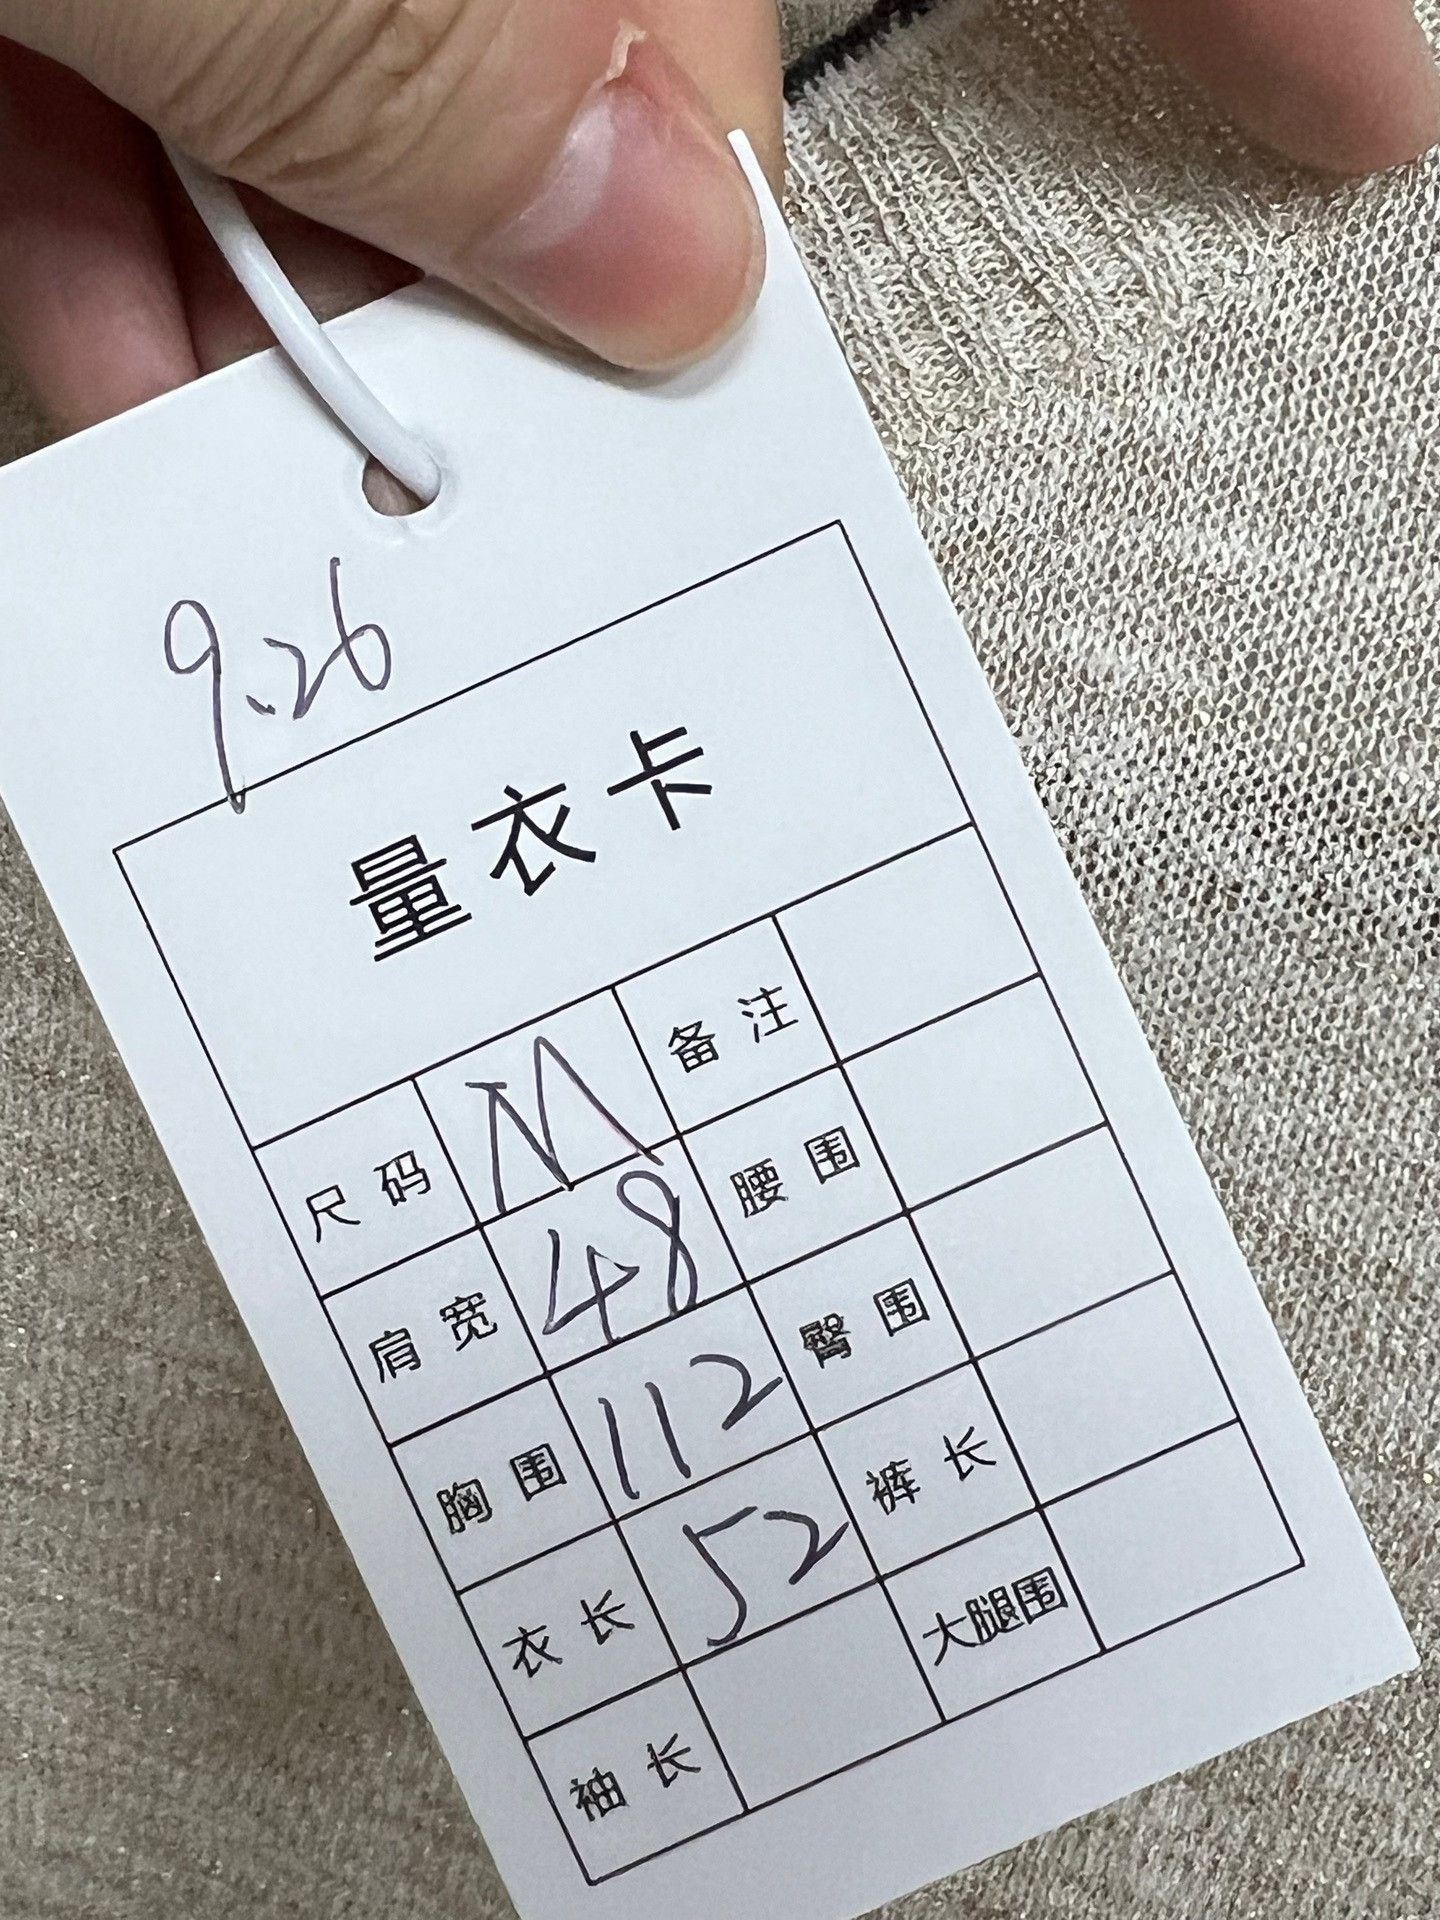 9.26
量衣卡
尺码 M 备注
肩宽 48 腰围
胸围 112 臀围
衣长 52 裤长
袖长 大腿围